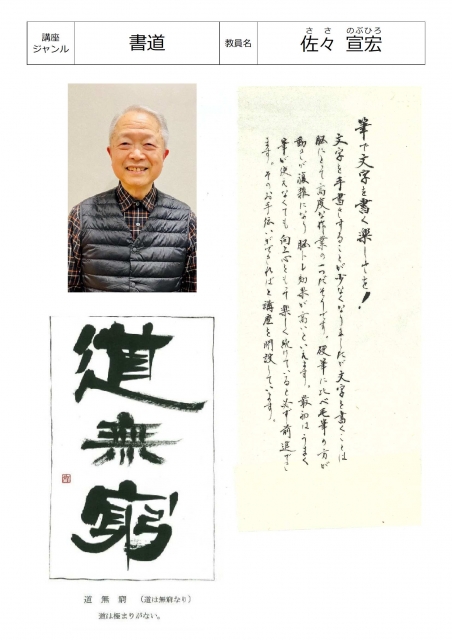 講座
ジャンル
書道
教員名
ささ のぶひろ
佐々 宣宏
筆で文字を書く楽しさを!
文字を手書きすることが少なくなりましたが文字を書くことは
脳にとって高度な作業の一つだそうです。硬筆に比べ毛筆の方が
動きが複雑になり脳トレ効果が高いといえます。最初はうまく
筆が使えなくても向上心をもって楽しく続けていると必ず前進でき
ます。そのお手伝いができればと講座を開設しています。
道
無
窮
道 無 窮 (道は無窮なり)
道は極まりがない。